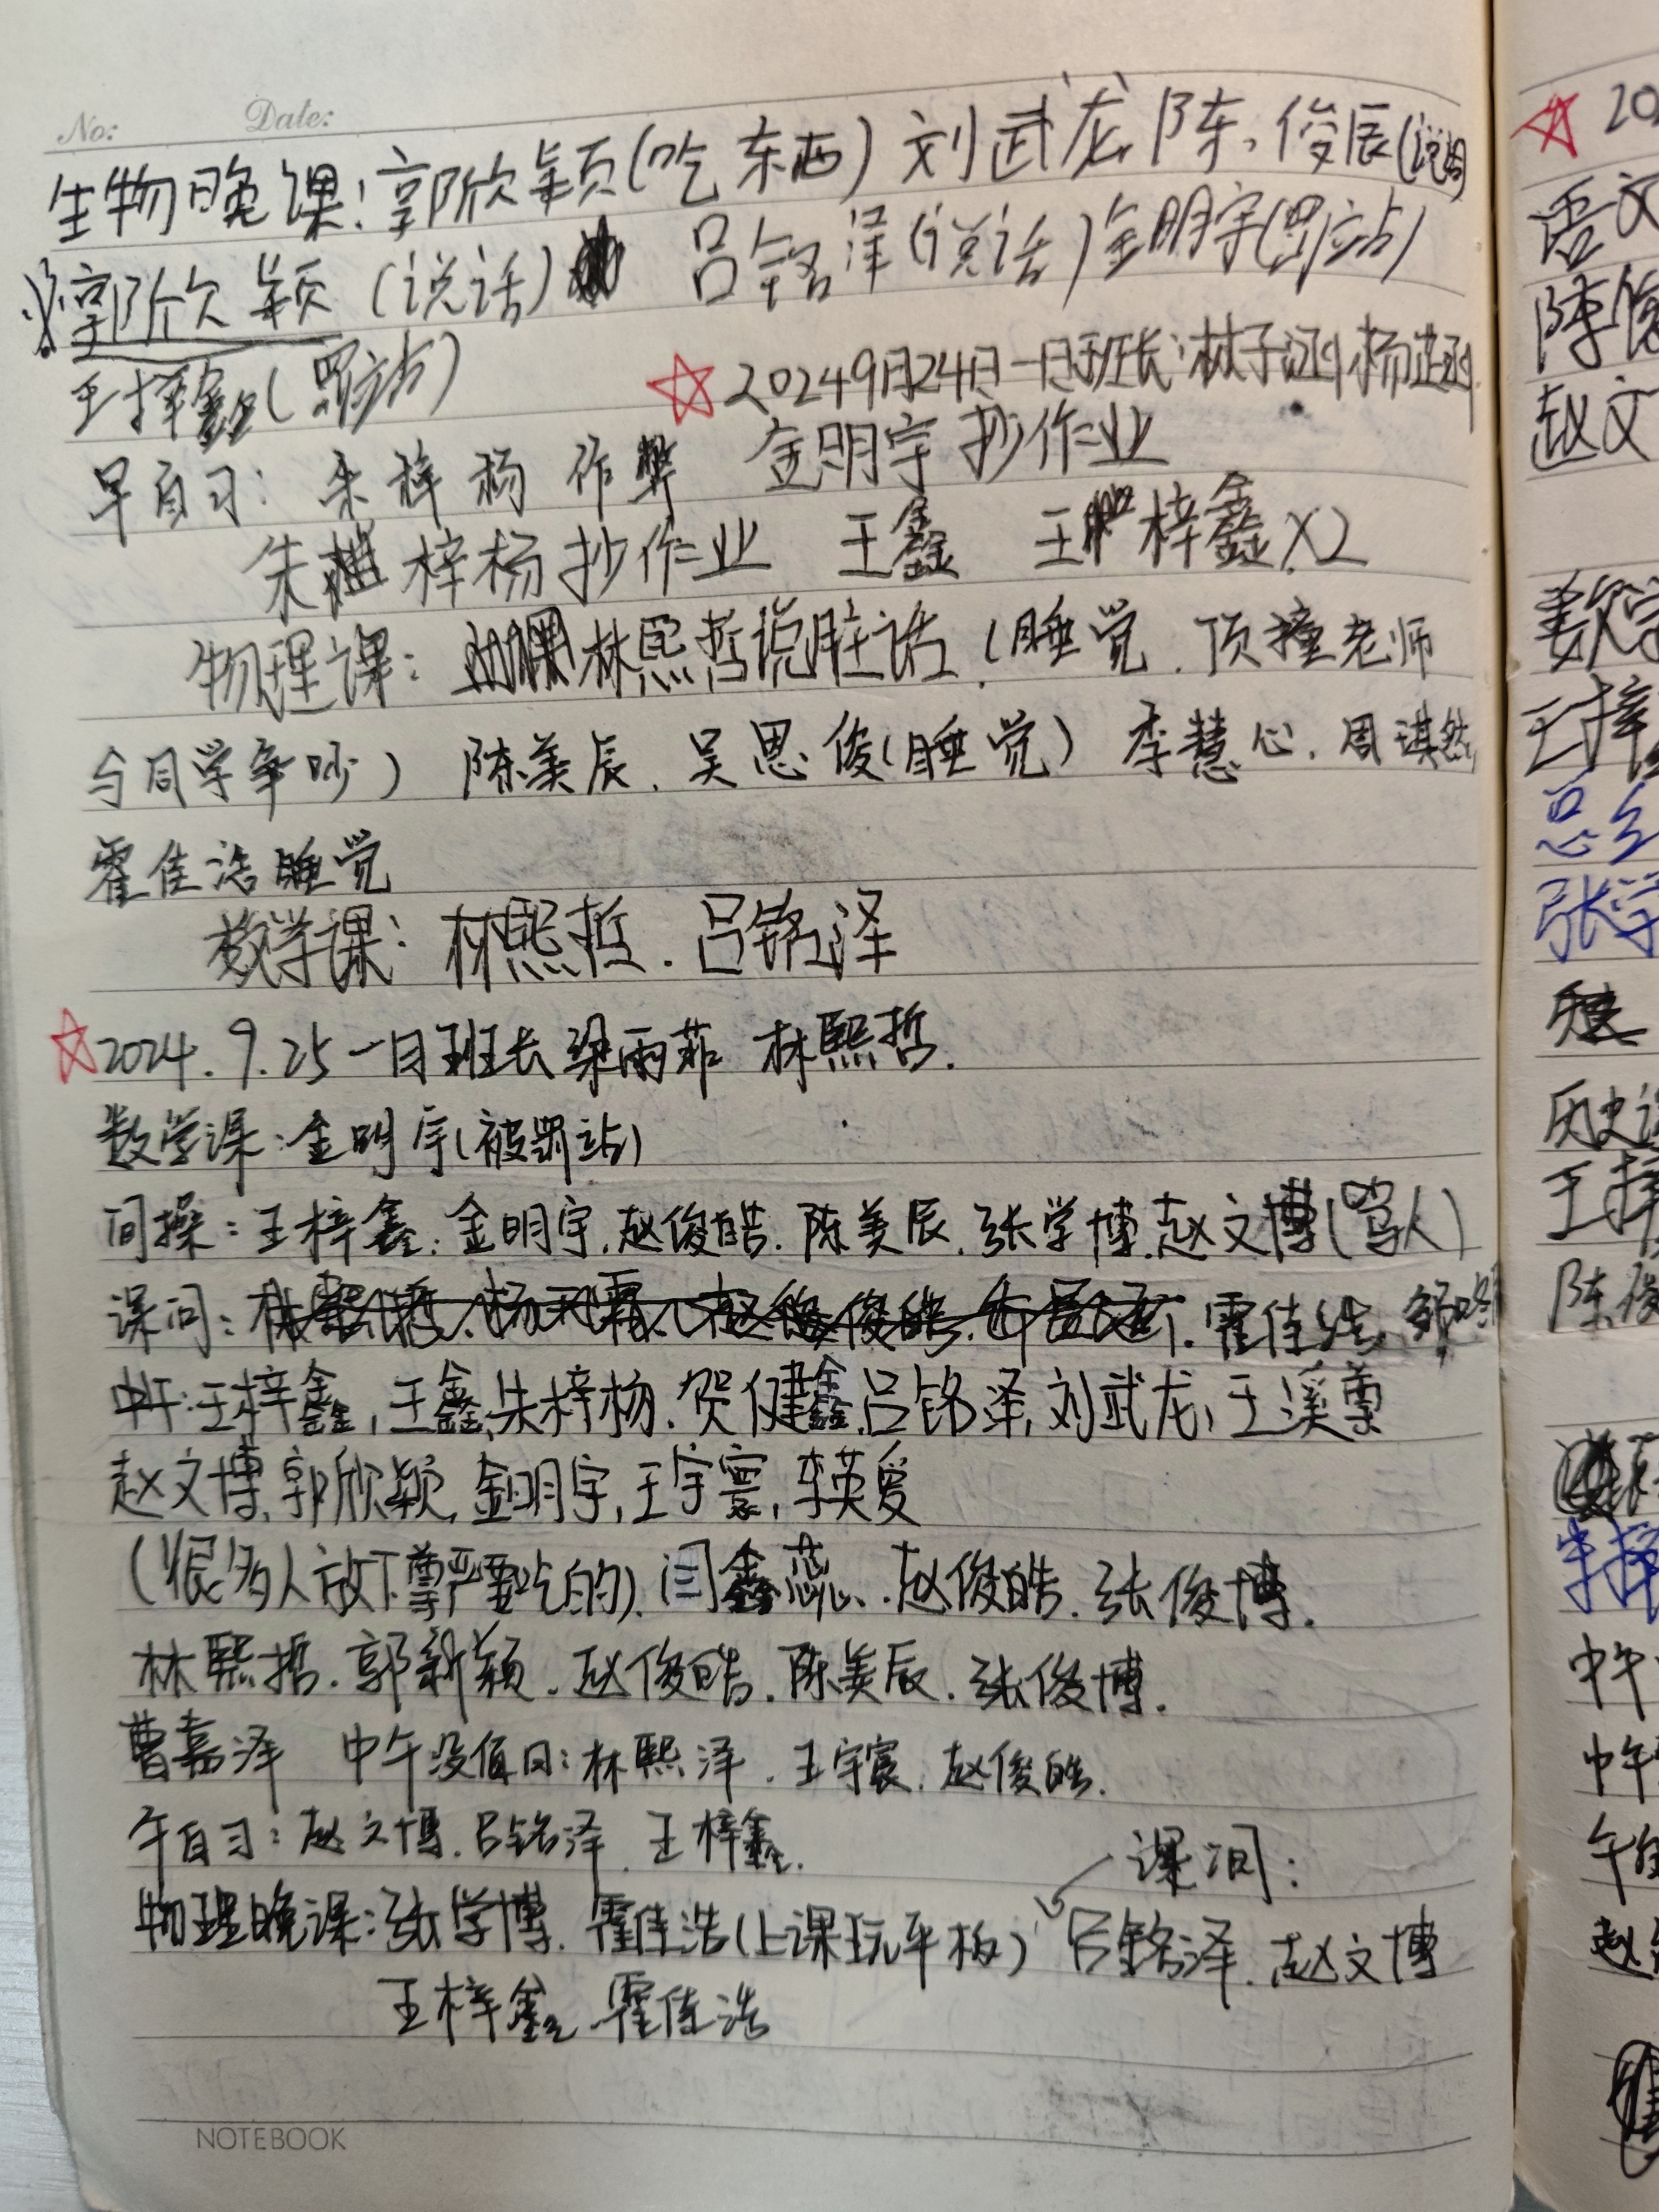 No: Date:
生物晚课：郭欣颖(吃东西) 刘武龙、陈俊辰(说话)
郭欣颖(说话) 吕铭泽(说话)金明宇(罚站)
王梓鑫(罚站)
☆20249月24日一日班长：林子涵 杨芷涵
早自习：朱梓杨 作弊 金明宇 抄作业
朱梓杨抄作业 王鑫 王梓鑫×2
物理课：林熙哲说脏话、(睡觉、顶撞老师
与同学争吵) 陈美辰、吴思俊(睡觉) 李慧心、周琪然
霍佳浩睡觉
数学课：林熙哲、吕铭泽
☆2024.9.25一日班长梁雨菲 林熙哲.
数学课：金明宇(被罚站)
间操：王梓鑫、金明宇、赵俊皓、陈美辰、张学博、赵文博(骂人)
课间：霍佳浩、
中午：王梓鑫，王鑫，朱梓杨、贺健鑫，吕铭泽，刘武龙，王溪尊
赵文博，郭欣颖，金明宇，王宇寰，李英爱
(很多人放下尊严要吃的)、闫鑫蕊、赵俊皓、张俊博.
林熙哲、郭新颖、赵俊皓、陈美辰、张俊博.
曹嘉泽 中午没值日：林熙泽、王宇宸、赵俊皓.
午自习：赵文博、吕铭泽、王梓鑫.
课间：
物理晚课：张学博、霍佳浩(上课玩平板) 吕铭泽、赵文博
王梓鑫、霍佳浩
NOTEBOOK
☆ 20
语文
陈俊
赵文
数学
王梓
张学
历史课
王梓
陈俊
朱梓
中午
中午
午自
赵